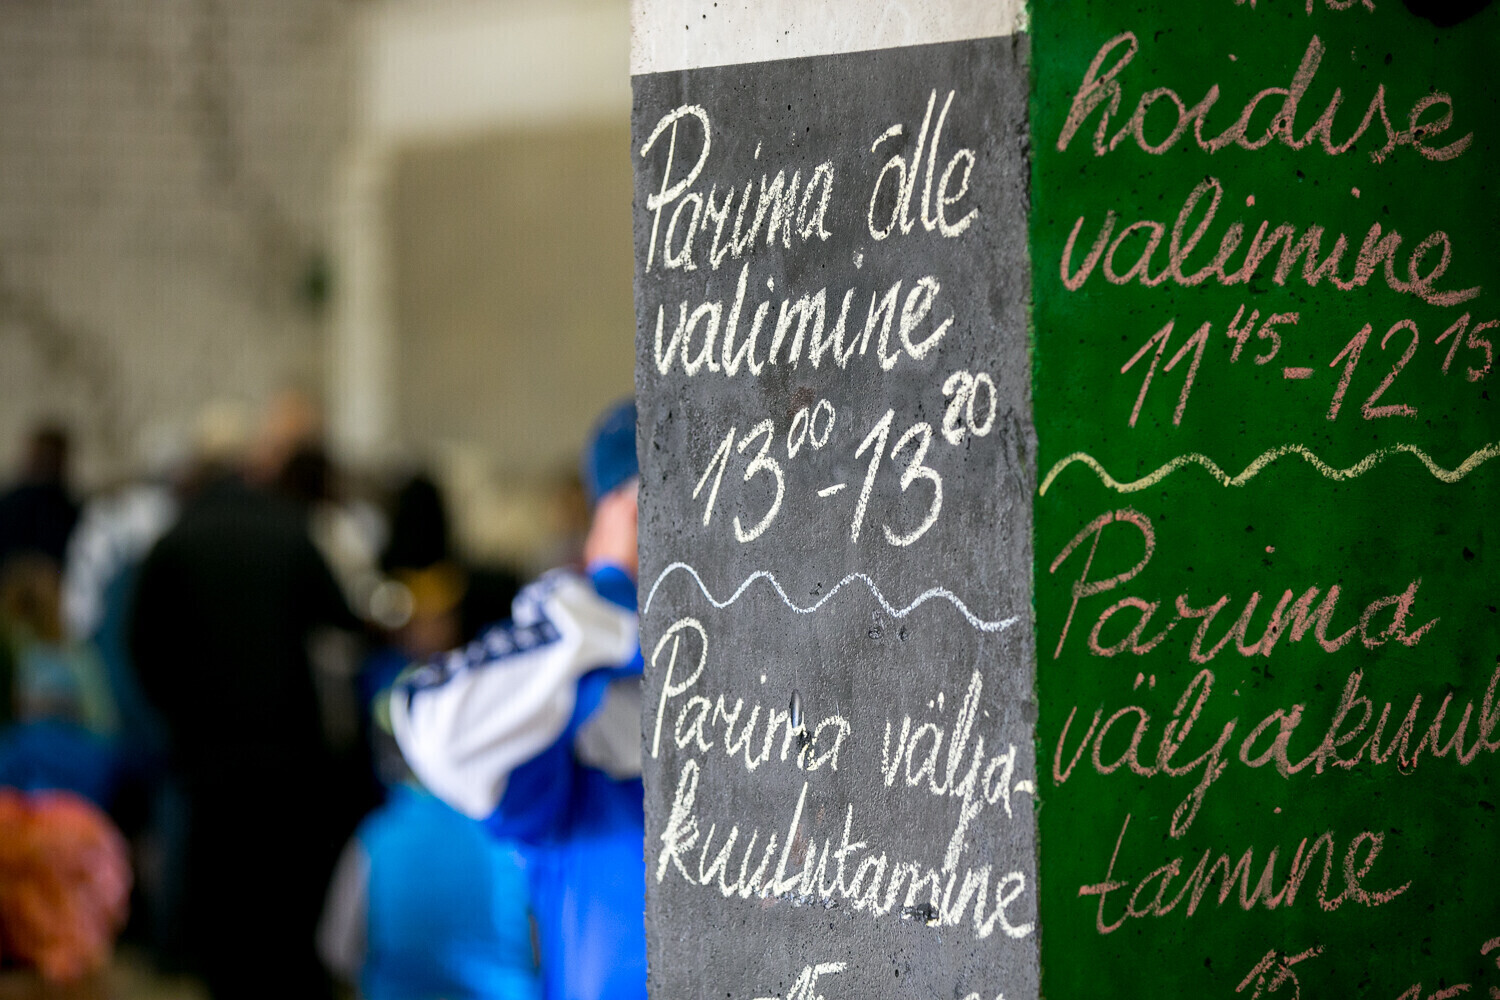 Parima õlle
valimine
13 00 - 13 20
Parima välja-
kuulutamine
15
hoidise
valimine
11 45 - 12 15
Parima
väljakuul
tamine
15